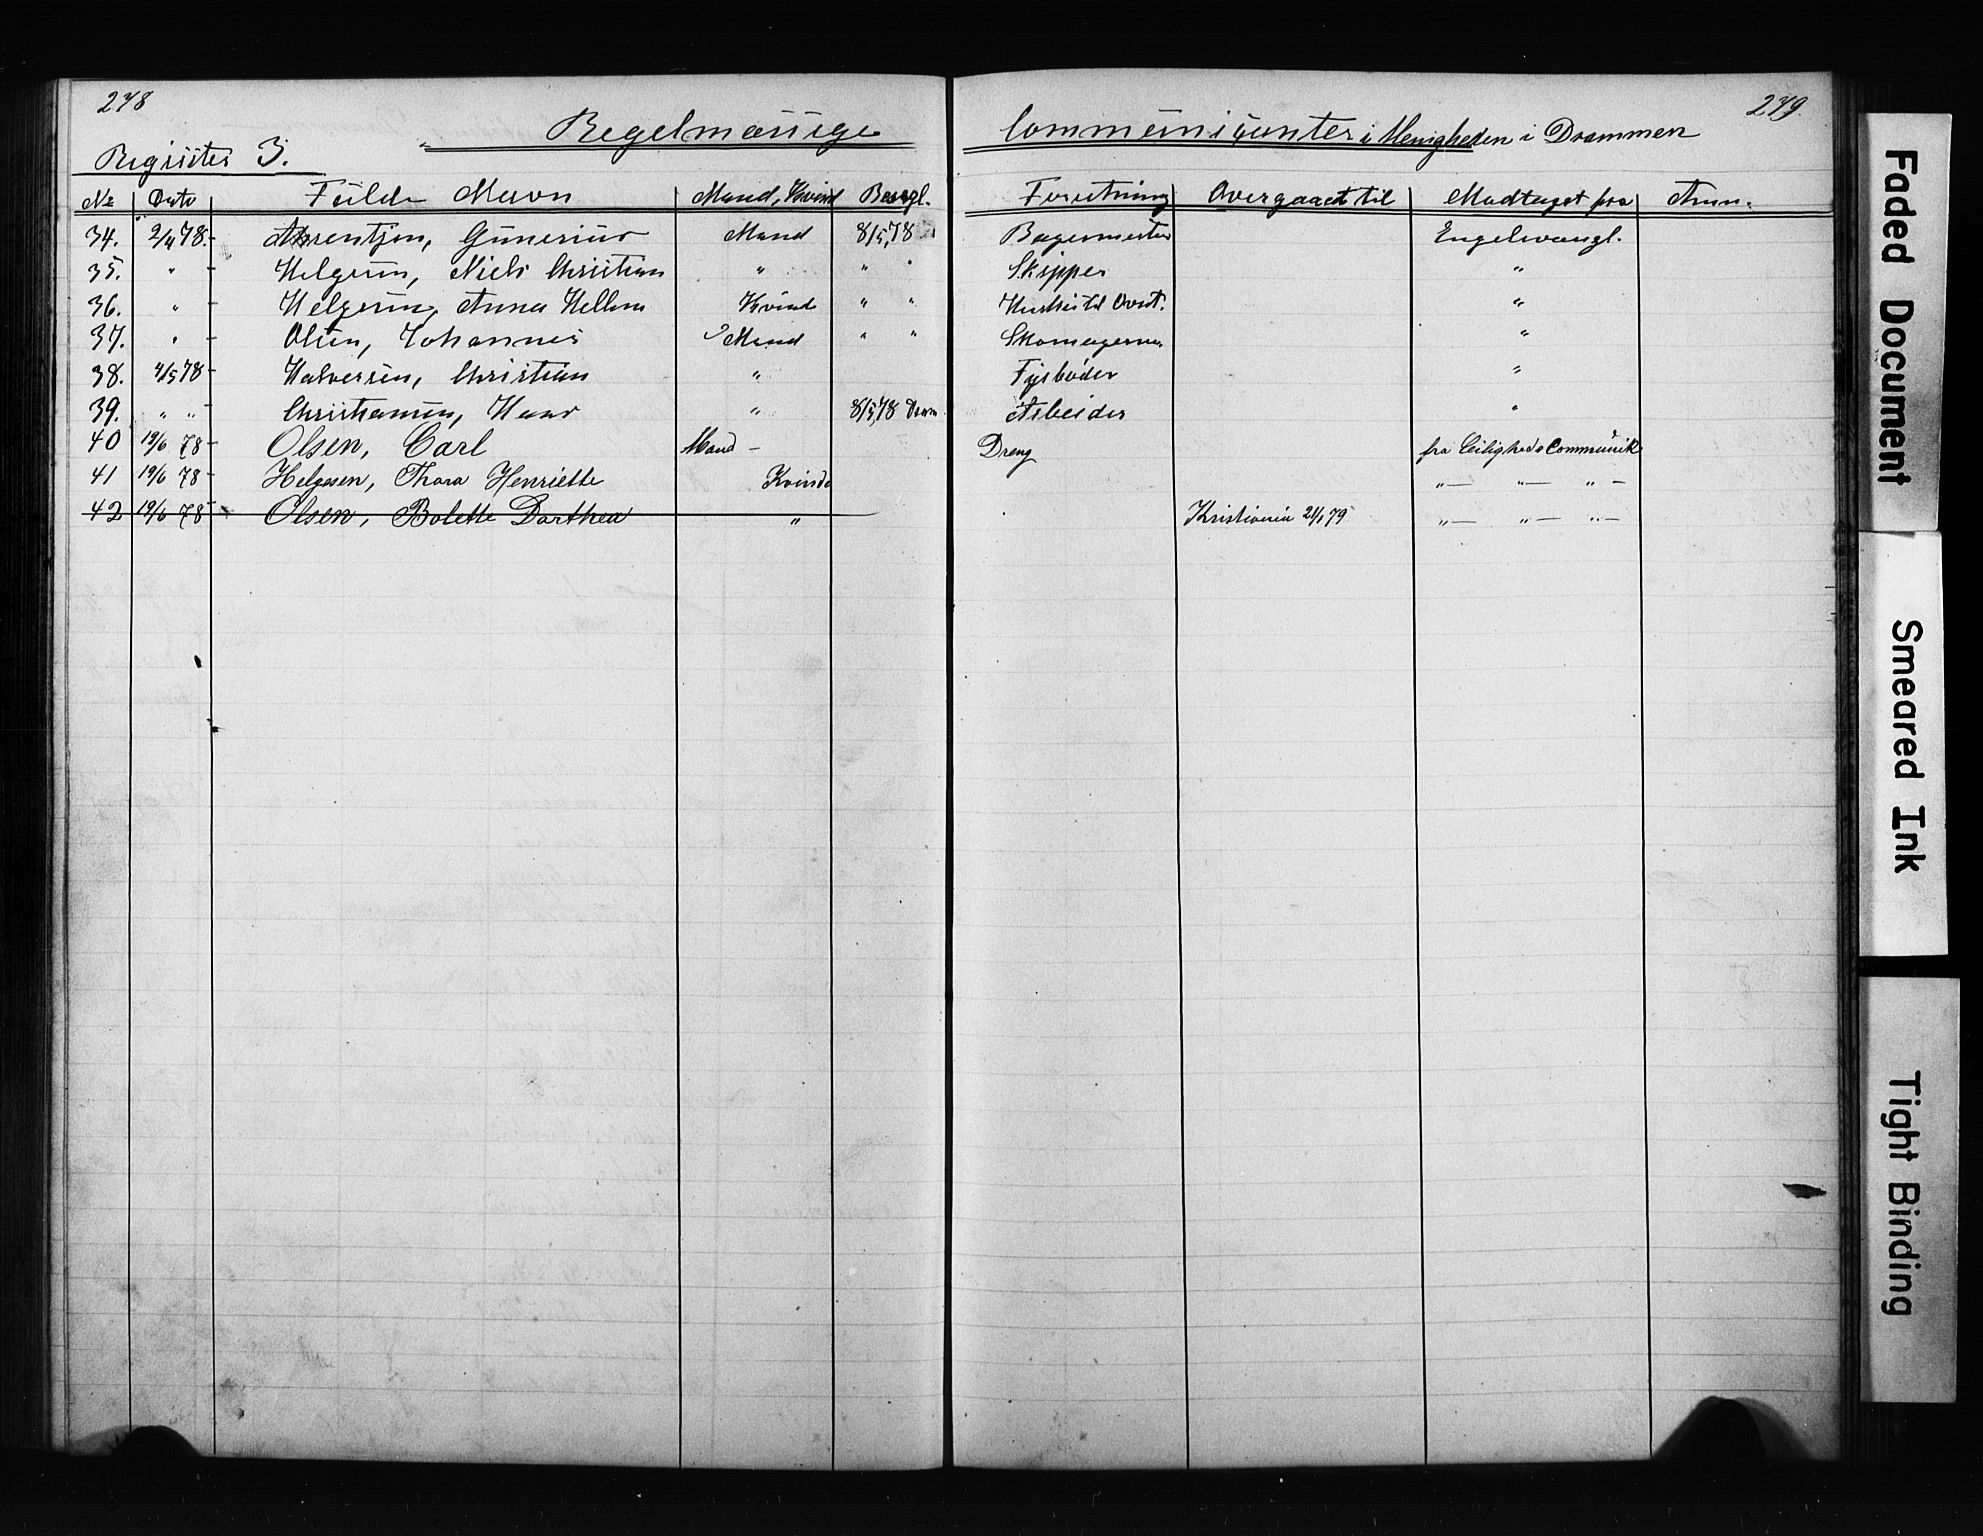 278
279.
Regelmæssige Communicanter i Menigheden i Drammen
Register 3.
№ Dato Fulde Navn Mand, Kvind Besegl. Forretning Overgaaet til Modtaget fra Anm.
34. 2/4 78. Arentzen, Gunerius Mand 8/5 78 Bagermester Engelvangl.
35. " Helgesen, Niels Christian " " " Skipper "
36. " Helgesen, Anna Kvinde " " "
37. " Olsen, Johannes Mand " " Skomagersv. "
38. 4/5 78 Halversen, Christian " Fyrbøder "
39. " " Christiansen, Hans " 8/5 78 Dram Arbeider "
40 19/6 78 Olsen, Carl Mand – Dreng fra Leiligheds Communik
41 19/6 78 Helgesen, Thora Henriette Kvinde "— "— " –
42 19/6 78 Olsen, Bolette Dorthea " Kristiania 21/1 79 "— "— "–
Faded Document
Smeared Ink
Tight Binding